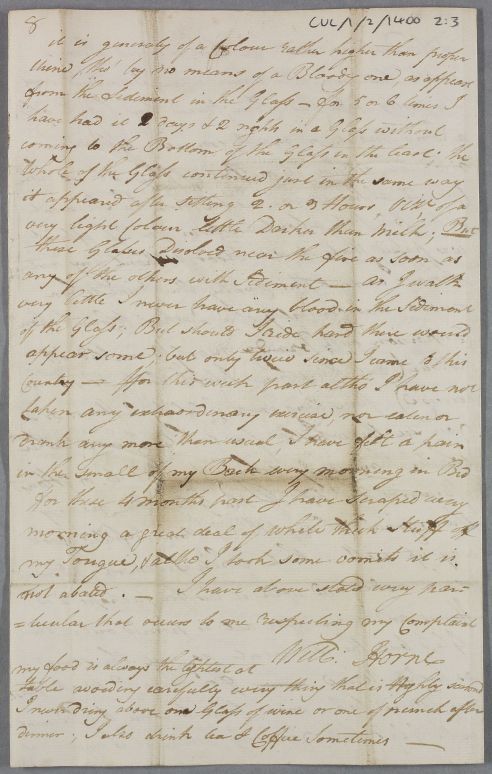 8
CUL/1/2/1400 2:3
it is generaly of a Colour rather higher than proper
thin by no means of a Bloody one as appears
from the Sediment in the Glass — for 5 or 6 times I
have had it 2 Days & 2 nights in a Glass without
coming to the Bottom of the Glass in the least; the
whole of the Glass continued just in the same way
it appeared after setting 2 or 3 Hours, of a
very light Colour, Little Darker than milk; But
these Glases Disolved near the fire as soon as
any of the others with Sediment — as I walk
very little I never have any blood in the Sediment
of the Glass; But should I ride hard there would
appear some; but only twice since I came to this
Country — for this week past altho I have not
taken any extraordinary exercise, nor eaten or
Drank any more than usual, I have felt a pain
in the small of my Back every morning in Bed
for these 4 months past I have scraped every
morning a great deal of white thick Stuff off
my Tongue, & altho I took some vomits it is
not abated. — I have above stated every par-
=ticular that occurs to me respecting my Complaint
Willm. Horne
my food is always the lightest at
table avoiding carefully every thing that is Highly
I never drink above one Glass of wine or one of after
dinner; I also drink tea & Coffee Sometimes —